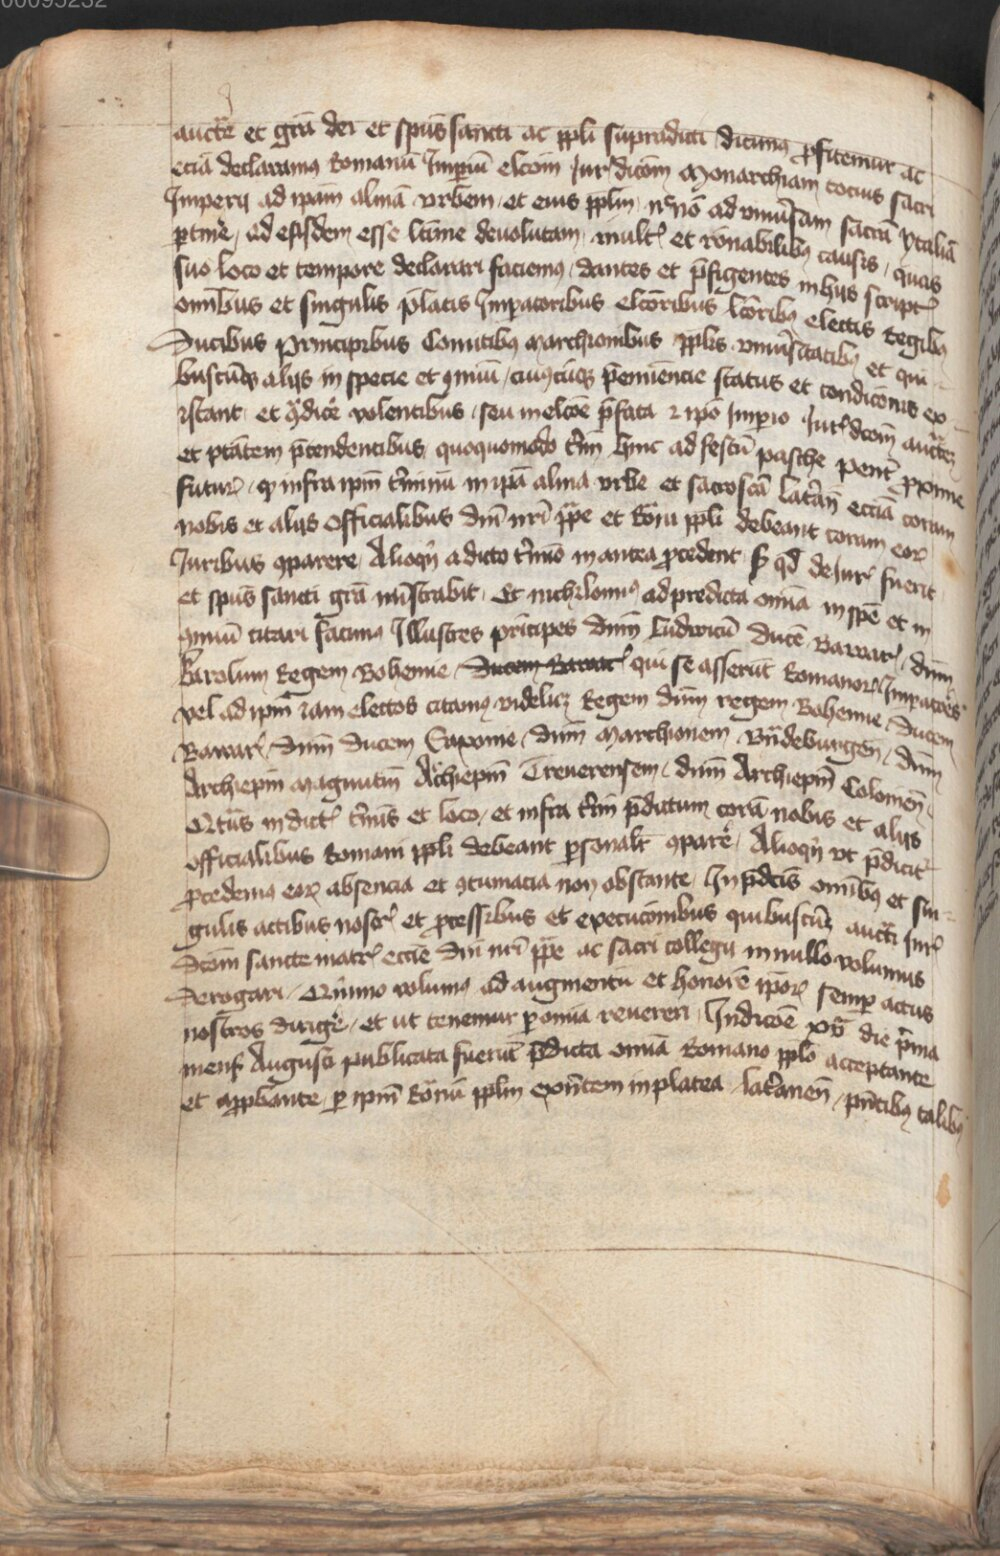 00095232
auctẽ et grã dei et spũs sancti ac ppli supradicti dicimꝰ ꝓfitemur ac
eciã declaramꝰ Romanũ Imperiũ elcõm Jurꝭdicõm Monarchiam tocius sacri
Imperij ad ipam almã vrbem et eius pplm necnõ ad vniuͥsam sacrã ytaliã
ꝑtinẽ ad easdem esse ltime deuolutam multꝭ et rõnabilibꝰ causis quas
suo loco et tempore declarari faciemꝰ dantes et p̃figentes in hijs scriptꝭ
omibus et singulis p̃latis Impatoribus elcõribus lcõribꝰ electis regibꝰ
Ducibus principibus Comitibꝰ Marchionibus pplis vniuͥsitatibꝰ et qui
buscũqꝫ alijs in specie et ꝯmuni cuiꝰcũqꝫ p̃eminencie status et condicõnis ex
istant et ꝯ̃dicẽ volentibus seu in elcõe p̃fata ⁊ ipõ Impio Jurꝭdcõm auctẽꝫ
et ptãtem p̃tendentibus quoquomodo t̃m hinc ad festũ pasche pent̃ ꝓxime
futurꝭ ꝙ infra ipm t̃minũ in ipã alma vrbe et sacroscã lat̃añ eccia coram
nobis et alijs officialibus dñi nr̃i ppe et Romi ppli debeant coram eoꝝ
Juribus ꝯparere Alioqñ a dicto t̃mio in antea ꝓcedent ß qd de Jurꝭ fuerit
et spũs sancti grã mistrabit Et nichilominꝰ ad predicta omia in spẽ et in
ꝯmuni citari facimꝰ Illustres prĩcipes dñm Ludwicũ ducẽ Bauarꝭ dñm
Karolum Regem Bohemie Ducem Bauarꝭ qui se asserũt Romanoꝝ Impatores
vel ad ipm iam electos citamꝰ videlicꝫ Regem dñm regem Bohemie Ducem
Bauarꝭ dñm Ducem Saxonie dñm Marchionem Brãdeburgeñ dñm
Archiepm Magũtiñ Archiepm Treuerensem dñm Archiepm Colonieñ
Qtus in dictꝭ t̃mis et loco et infra t̃m p̃dictum corã nobis et alijs
officialibus Romani ppli debeant ꝑsonalꝭ ꝯparẽ Alioqñ vt p̃dicitꝭ
ꝓcedemꝰ eoꝝ absencia et ꝯtumacia non obstante In p̃dcis omibꝰ et sin
gulis actibus nostrꝭ et ꝓcessibus et execucionibus quibuscũqꝫ auctẽ Jurꝭ
dcõm sancte matrꝭ eccie dñi nr̃i ppe ac sacri collegij in nullo volumus
derogari Qinimo volumꝰ ad augmentũ et honorẽ ipoꝝ semper actus
nostros dirigẽ et ut tenemur ꝑ omia reuereri Indicõe xvͣ die p̃ma
mens Augusti publicata fuerũt p̃dicta omia Romano pplo acceptante
et approbante ꝑ ipm Romũ pplm existẽtem in platea lat̃aneñ p̃ntibꝰ talibꝰ